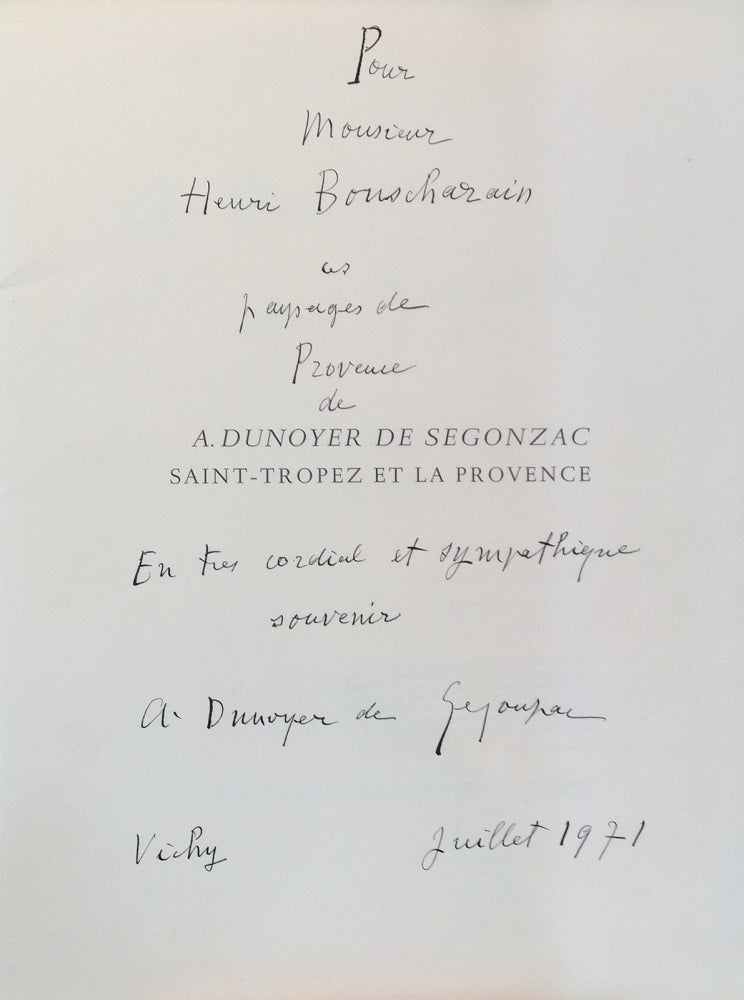 Pour
Monsieur
Henri Bouscharain
ces
paysages de
Provence
de
A. DUNOYER DE SEGONZAC
SAINT-TROPEZ ET LA PROVENCE
En très cordial et sympathique
souvenir
A. Dunoyer de Segonzac
Vichy Juillet 1971